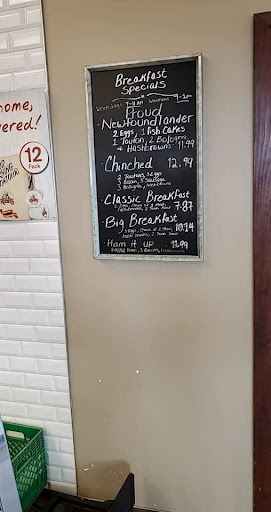 ome,
ered!
12
Pack
Breakfast
Specials
Weekdays 7-11 AM Weekends 9-1pm
Proud
Newfoundlander
2 Eggs, 1 Fish Cakes
1 Touton, 2 Bologna
& Hashbrowns 11.99
Chinched 12.99
2 Toutons, 3 Eggs
3 Bacon, 3 Sausage
3 Bologna, Hashbrowns
Classic Breakfast
7.87
Big Breakfast
3 Eggs, Choice of 2 Meat,
10.14
Ham it UP 11.99